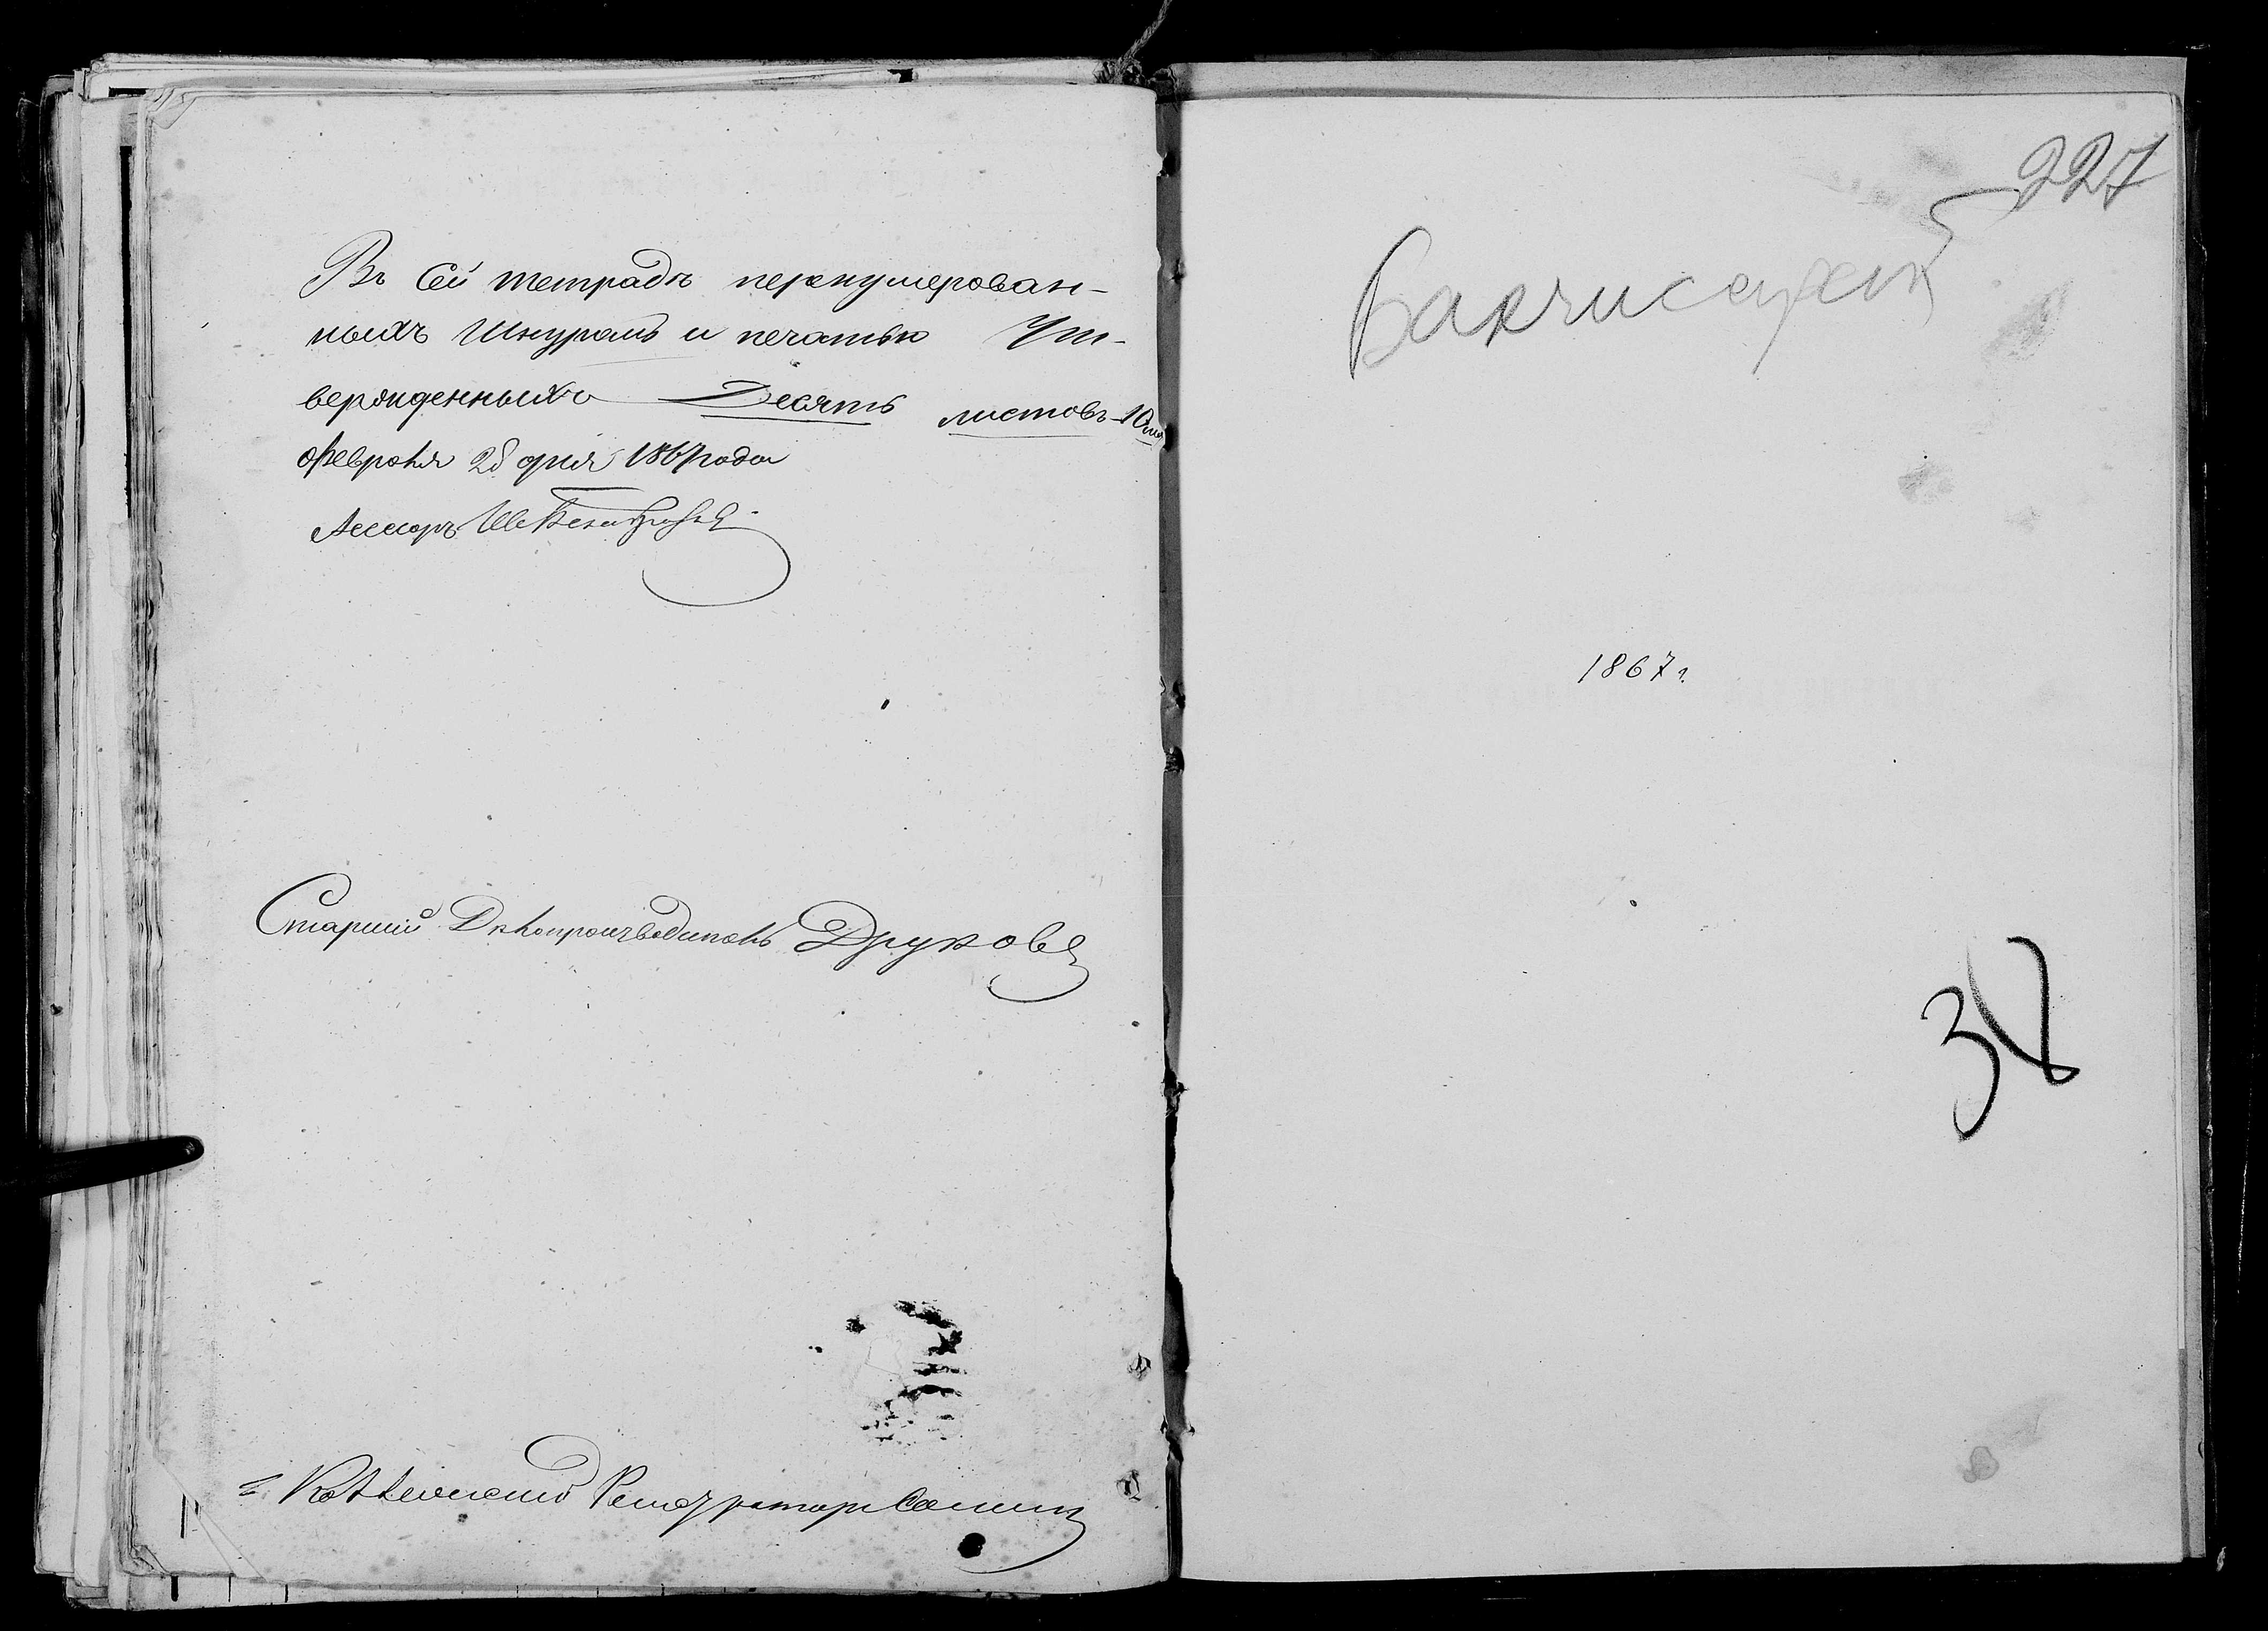 Въ Сей тетрадѣ перенумерован-
ныхъ Шнуромъ и печатью Ут-
вержденныхъ Десять листовъ - 10
Февраля 28 дня 1867 года
Асесоръ
Старшій Дѣлопроизводитель Друковъ
Коллежскій Регистраторъ
227
Бахчисарай
1867 г.
38